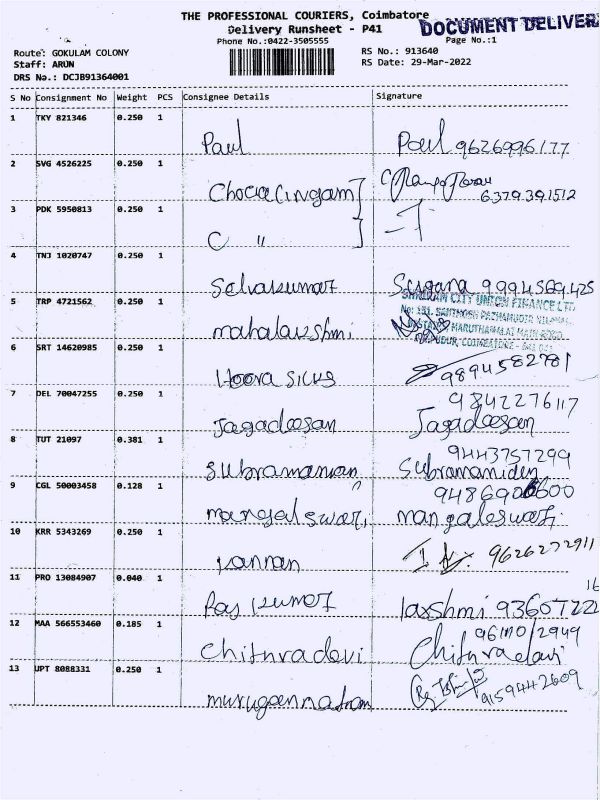 THE PROFESSIONAL COURIERS, Coimbatore
DOCUMENT DELIVER
Delivery Runsheet - P41
Phone No.:0422-3505555
Page No.:1
Route: GOKULAM COLONY
RS No.: 913640
Staff: ARUN
RS Date: 29-Mar-2022
DRS No.: DCJB91364001
S No Consignment No Weight PCS Consignee Details Signature
1 TKY 821346 0.250 1
Paul Paul 9626996177
2 SVG 4526225 0.250 1
6379391512
3 PDK 5950813 0.250 1
C "
4 TNJ 1020747 0.250 1
Selvakumar Sugana 9994569425
5 TRP 4721562 0.250 1
SHRIRAM CITY UNION FINANCE LTD
mahalakshmi
6 SRT 14620985 0.250 1
9894582781
7 DEL 70047255 0.250 1
9842276117
Jagadeesan Jagadeesan
8 TUT 21097 0.381 1
9443757299
Subramanian
9 CGL 50003458 0.128 1
mangaleswari, mangaleswari
10 KRR 5343269 0.250 1
kannan 9626272911
11 PRO 13084907 0.040 1
Raj kumar laxshmi
12 MAA 566553460 0.185 1
Chithradevi Chithradevi
13 UPT 8088331 0.250 1
9159442609